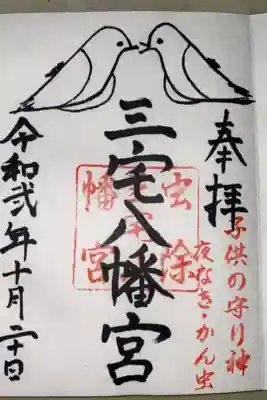 奉拝
子供の守り神
夜なき・かん虫
三宅八幡宮
虫除
三宅
八幡宮
令和弐年十月二十日